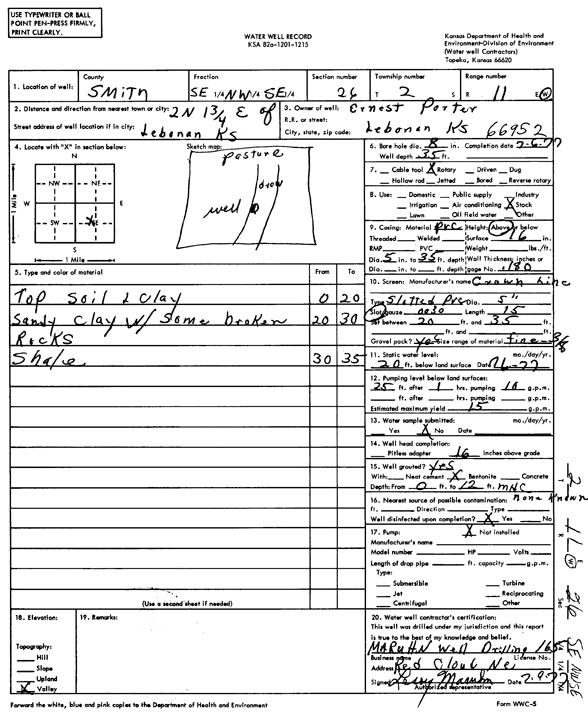 USE TYPEWRITER OR BALL
POINT PEN-PRESS FIRMLY,
PRINT CLEARLY.
WATER WELL RECORD
KSA 82a-1201-1215
Kansas Department of Health and
Environment-Division of Environment
(Water well Contractors)
Topeka, Kansas 66620
1. Location of well: County SMITH Fraction SE 1/4 NW 1/4 SE 1/4 Section number 26 Township number T 2 S Range number R 11 E/W
2. Distance and direction from nearest town or city: 2N 1 3/4 E of
Street address of well location if in city: Lebanon KS
3. Owner of well: Ernest Porter
R.R. or street:
City, state, zip code: Lebanon KS 66952
4. Locate with "X" in section below:
N
NW NE
W E
SW SE
S
1 Mile
1 Mile
Sketch map:
Pasture
draw
well
6. Bore hole dia. 8 in. Completion date 2-6-77
Well depth 35 ft.
7. Cable tool X Rotary Driven Dug
Hollow rod Jetted Bored Reverse rotary
8. Use: Domestic Public supply Industry
Irrigation Air conditioning X Stock
Lawn Oil field water Other
9. Casing: Material PVC Height: Above or below
Threaded Welded Surface 16 in.
RMP PVC Weight lbs./ft.
Dia. 5 in. to 35 ft. depth Wall Thickness: inches or
Dia. in. to ft. depth gage No. .180
5. Type and color of material From To
Top Soil & Clay 0 20
Sandy Clay w/ Some broken 20 30
Rocks
Shale 30 35
(Use a second sheet if needed)
10. Screen: Manufacturer's name Crown Line
Type Slotted PVC Dia. 5"
Slot/gauze .0030 Length 15
Set between 20 ft. and 35 ft.
ft. and ft.
Gravel pack? yes Size range of material fine-3/8
11. Static water level: mo./day/yr.
20 ft. below land surface Date
12. Pumping level below land surfaces:
25 ft. after 1 hrs. pumping 10 g.p.m.
ft. after hrs. pumping g.p.m.
Estimated maximum yield 15 g.p.m.
13. Water sample submitted: mo./day/yr.
Yes X No Date
14. Well head completion:
Pitless adapter 16 Inches above grade
15. Well grouted? yes
With: Neat cement X Bentonite Concrete
Depth: From 0 ft. to 12 ft.
16. Nearest source of possible contamination: none Known
ft. Direction Type
Well disinfected upon completion? X Yes No
17. Pump: X Not installed
Manufacturer's name
Model number HP Volts
Length of drop pipe ft. capacity g.p.m.
Type:
Submersible Turbine
Jet Reciprocating
Centrifugal Other
18. Elevation:
Topography:
Hill
Slope
Upland
X Valley
19. Remarks:
20. Water well contractor's certification:
This well was drilled under my jurisdiction and this report
is true to the best of my knowledge and belief.
MARUHN Well Drilling 165
Business name License No.
Address Red Cloud Ne
Signed Date 2-9-77
Authorized representative
Forward the white, blue and pink copies to the Department of Health and Environment
Form WWC-5
T 2
R 11 E W
Sec 26
SE NW SE
1/4 1/4 1/4